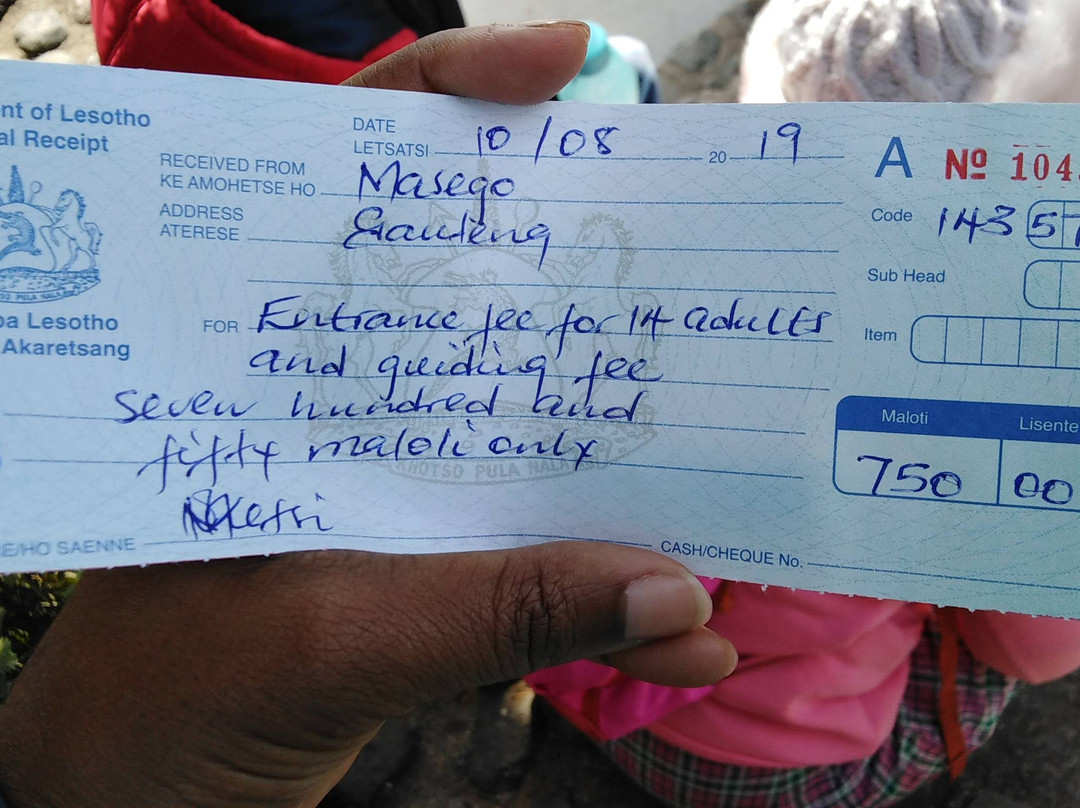 nt of Lesotho
al Receipt
DATE
LETSATSI 10/08 20 19
RECEIVED FROM
KE AMOHETSE HO Masego
ADDRESS
ATERESE Gauteng
A Nº 104
Code 143 5
Sub Head
Item
SO PULA NALA
ba Lesotho
Akaretsang
FOR Entrance fee for 14 adults
and guiding fee
seven hundred and
fifty maloti only
KHOTSO PULA NALA
Maloti Lisente
750 00
E/HO SAENNE
CASH/CHEQUE No.